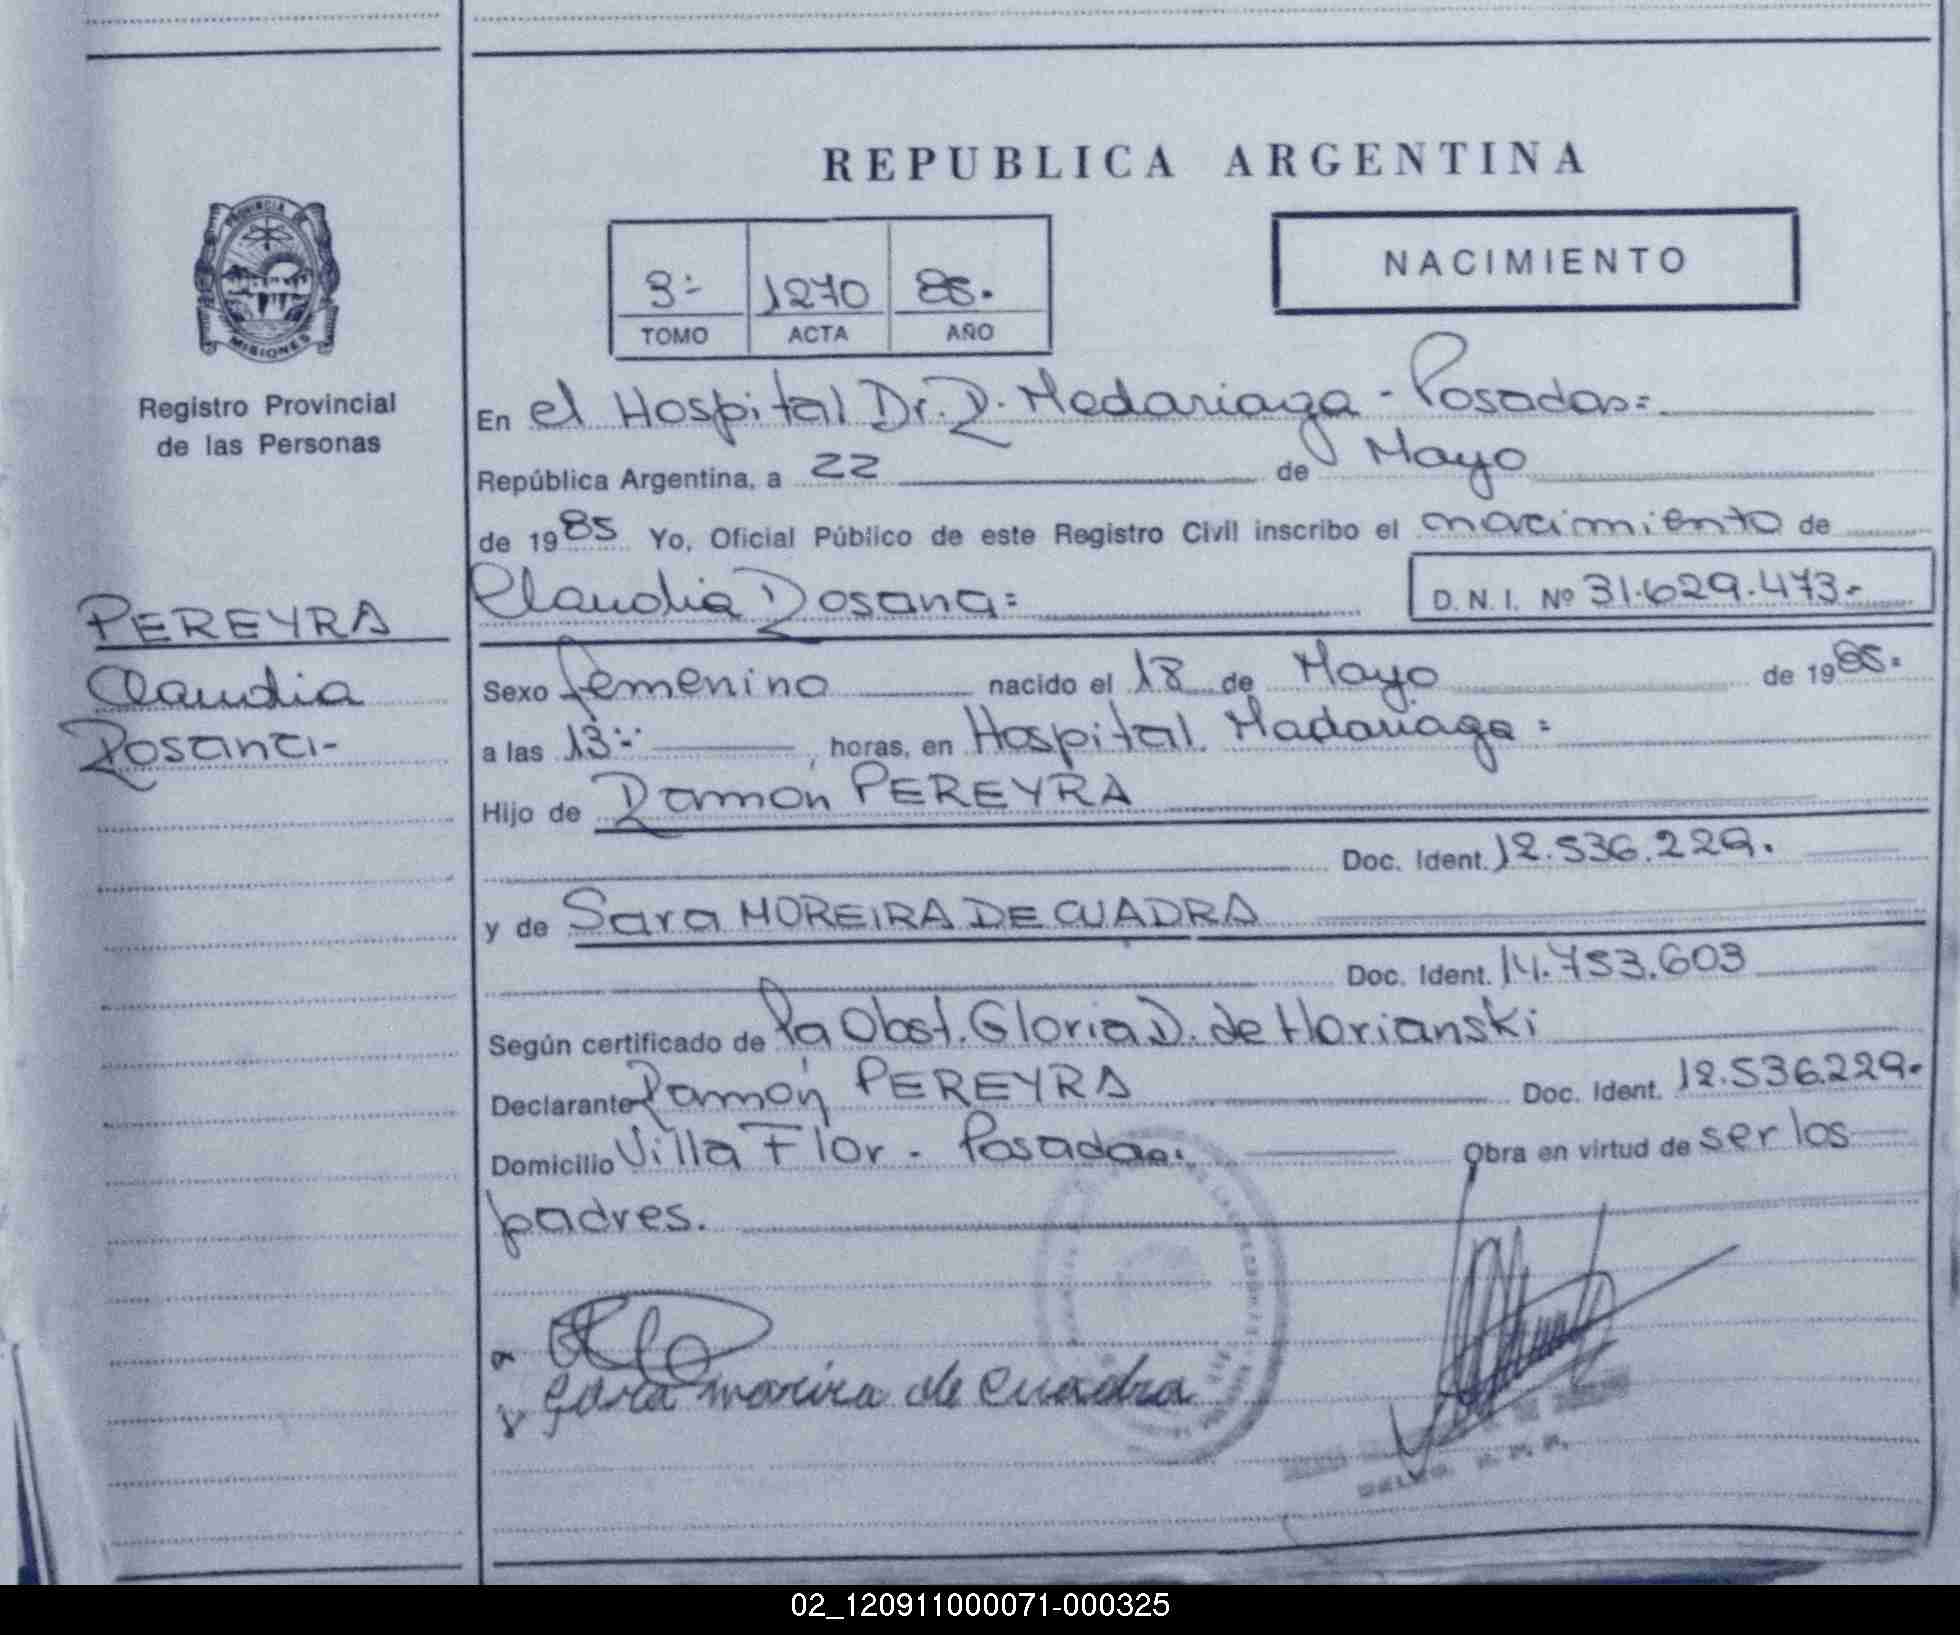 REPUBLICA ARGENTINA
PROVINCIA DE
MISIONES
Registro Provincial
de las Personas
3- 1270 85.
TOMO ACTA AÑO
NACIMIENTO
En el Hospital Dr. R. Madariaga - Posadas=
República Argentina, a 22 de Mayo
de 1985 Yo, Oficial Público de este Registro Civil inscribo el nacimiento de
Claudia Rosana= D. N. I. Nº 31.629.473.-
PEREYRA
Claudia
Rosana-
Sexo femenino nacido el 18 de Mayo de 1985.
a las 13= horas, en Hospital. Madariaga=
Hijo de Ramón PEREYRA
Doc. Ident. 12.536.229.
y de Sara MOREIRA DE CUADRA
Doc. Ident. 14.753.603
Según certificado de la Obst. Gloria D. de Horianski
Declarante Ramón PEREYRA Doc. Ident. 12.536.229.
Domicilio Villa Flor - Posadas. Obra en virtud de ser los
padres.
Sara moreira de Cuadra
02_120911000071-000325